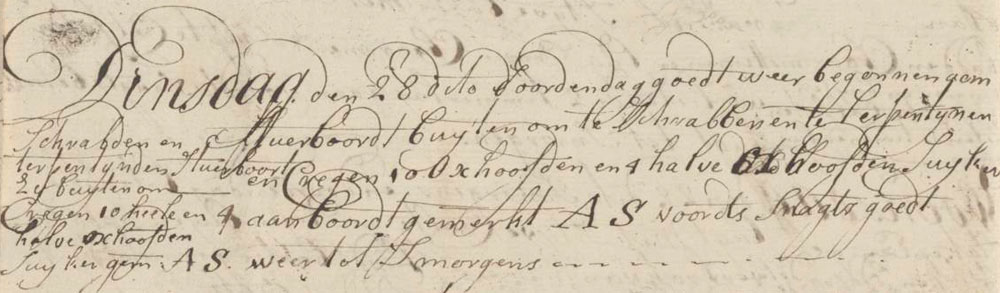 Dinsdag den 28 dito Foordendag goedt weer begonnen gem
Schrabden en Stuerboordt buyten om te Schrabben en te terpentynen
terpentynden Stuerboort en Cregen 10 Oxhoofden en 4 halve oxhoofden Suyker
Zy buytenom
Cregen 10 heele en 4 aanboordt gemerkt A S voords Snagts goedt
halve oxhoofden
Suyker gem: A S. weer tot Smorgens